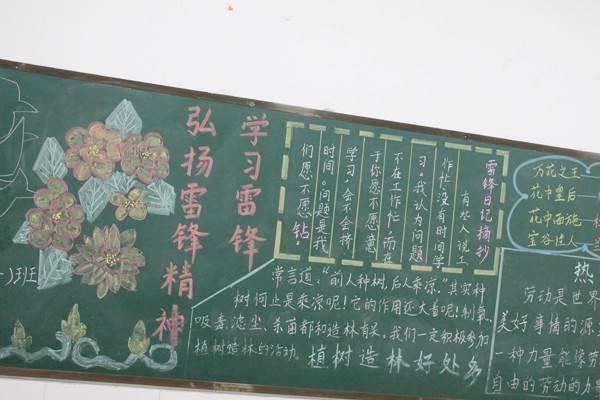 学习雷锋
弘扬雷锋精神
)班
雷锋日记摘抄
有些人说工
作忙没有时间学
习。我认为问题
不在工作忙,而在
于你愿不愿意
学习,会不会挤
时间。问题是我
们愿不愿钻。
常言道:"前人种树,后人乘凉。"其实种
树何止是乘凉呢!它的作用还大着呢!制氧、
吸毒、滤尘、杀菌都和造林有关。我们一定积极参加
植树造林的活动。
植树造林好处多
万花之王
花中皇后
花中西施
空谷佳人
热
劳动是世界
美好事情的源
一种力量能像劳
自由的劳动的力